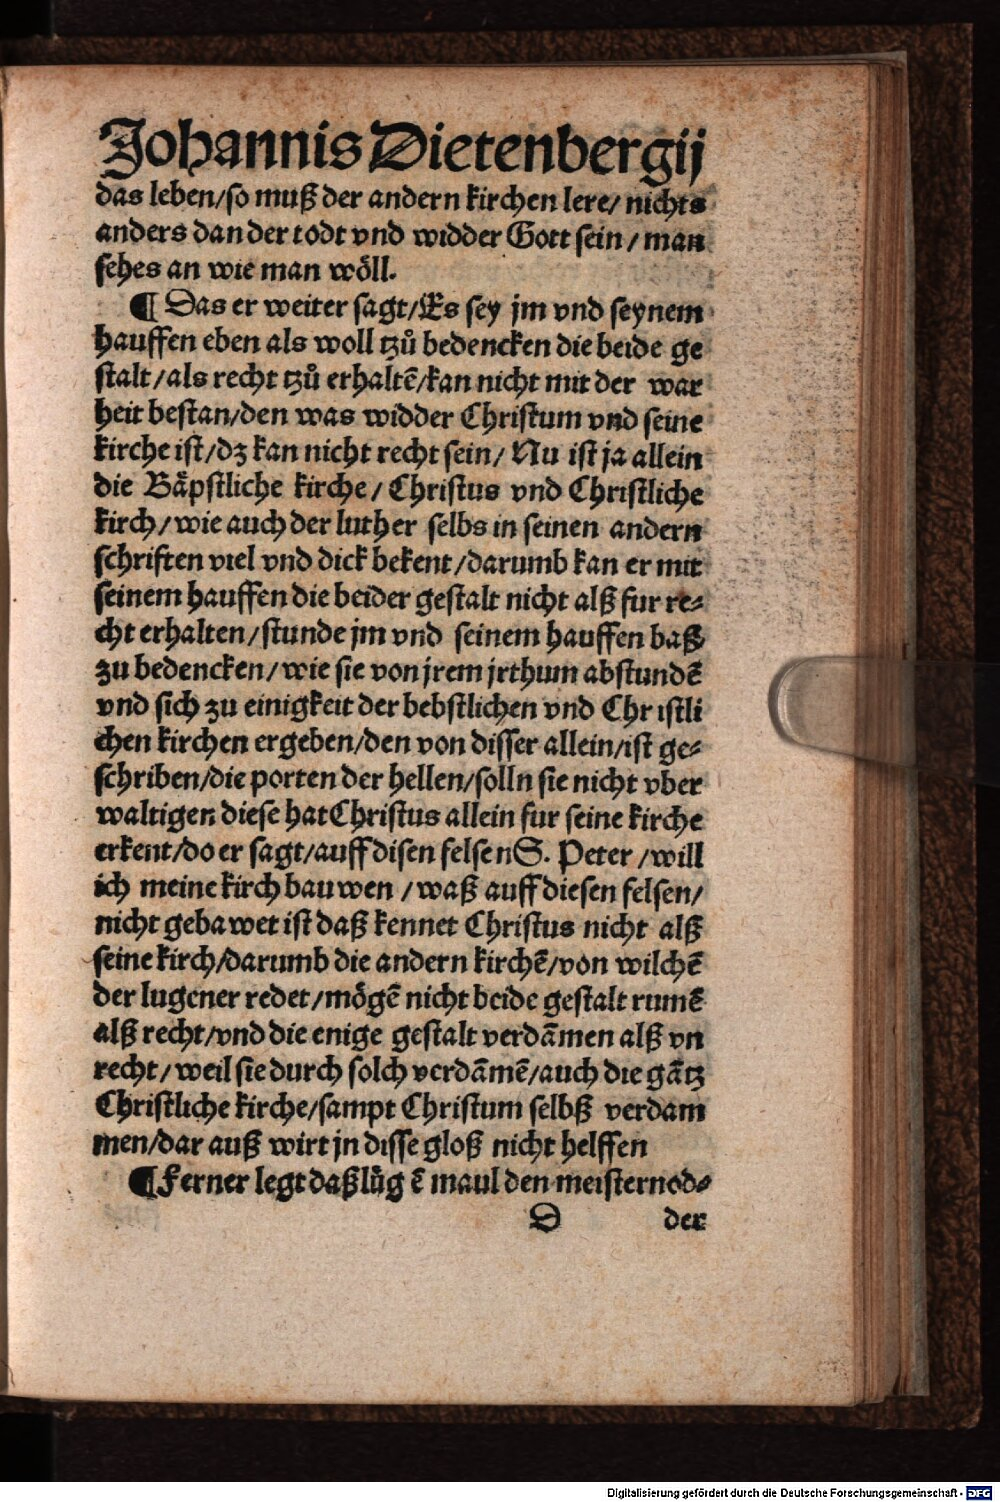 Johannis Dietenbergij
das leben/so muß der andern kirchen lere/ nichts
anders dan der todt vnd widder Gott sein / man
sehes an wie man wöll.
¶ Das er weiter sagt/Es sey jm vnd seynem
hauffen eben als woll tzů bedencken die beide ge
stalt/als recht tzů erhaltē/kan nicht mit der war
heit bestan/den was widder Christum vnd seine
kirche ist/dz kan nicht recht sein/ Nu ist ja allein
die Bäpstliche kirche / Christus vnd Christliche
kirch/wie auch der luther selbs in seinen andern
schriften viel vnd dick bekent/darumb kan er mit
seinem hauffen die beider gestalt nicht alß fur re⸗
cht erhalten/stunde jm vnd seinem hauffen baß
zu bedencken/wie sie von jrem jrthum abstundē
vnd sich zu einigkeit der bebstlichen vnd Chr istli
chen kirchen ergeben/den von disser allein/ist ge⸗
schriben/die porten der hellen/solln sie nicht vber
waltigen diese hat Christus allein fur seine kirche
erkent/do er sagt/auff disen felsen S. Peter /will
ich meine kirch bauwen / waß auff diesen felsen/
nicht gebawet ist daß kennet Christus nicht alß
seine kirch/darumb die andern kirchē/von wilchē
der lugener redet/mögē nicht beide gestalt rumē
alß recht/vnd die enige gestalt verdāmen alß vn
recht/ weil sie durch solch verdāmē/auch die gātz
Christliche kirche/sampt Christum selbß verdam
men/dar auß wirt jn disse gloß nicht helffen
¶ Ferner legt daß lüg ē maul den meistern od⸗
D der
Digitalisierung gefördert durch die Deutsche Forschungsgemeinschaft - DFG